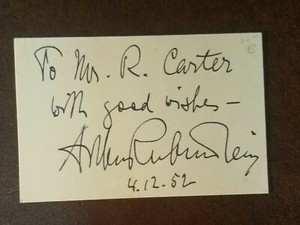 To Mr. R. Carter
with good wishes –
Arthur Rubinstein
4.12.52